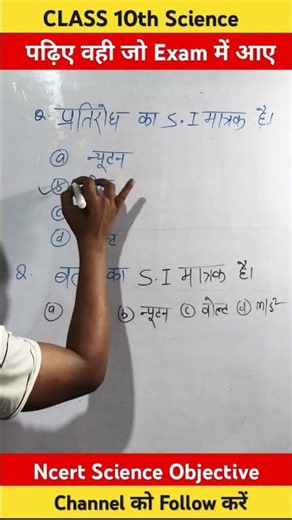 CLASS 10th Science
पढ़िए वही जो Exam में आए
Q. प्रतिरोध का S.I मात्रक है।
(a) न्यूटन
(b)
(c)
(d)
Q. का S.I मात्रक है।
(a) (b) न्यूटन (c) वोल्ट (d) m/s²
Ncert Science Objective
Channel को Follow करें